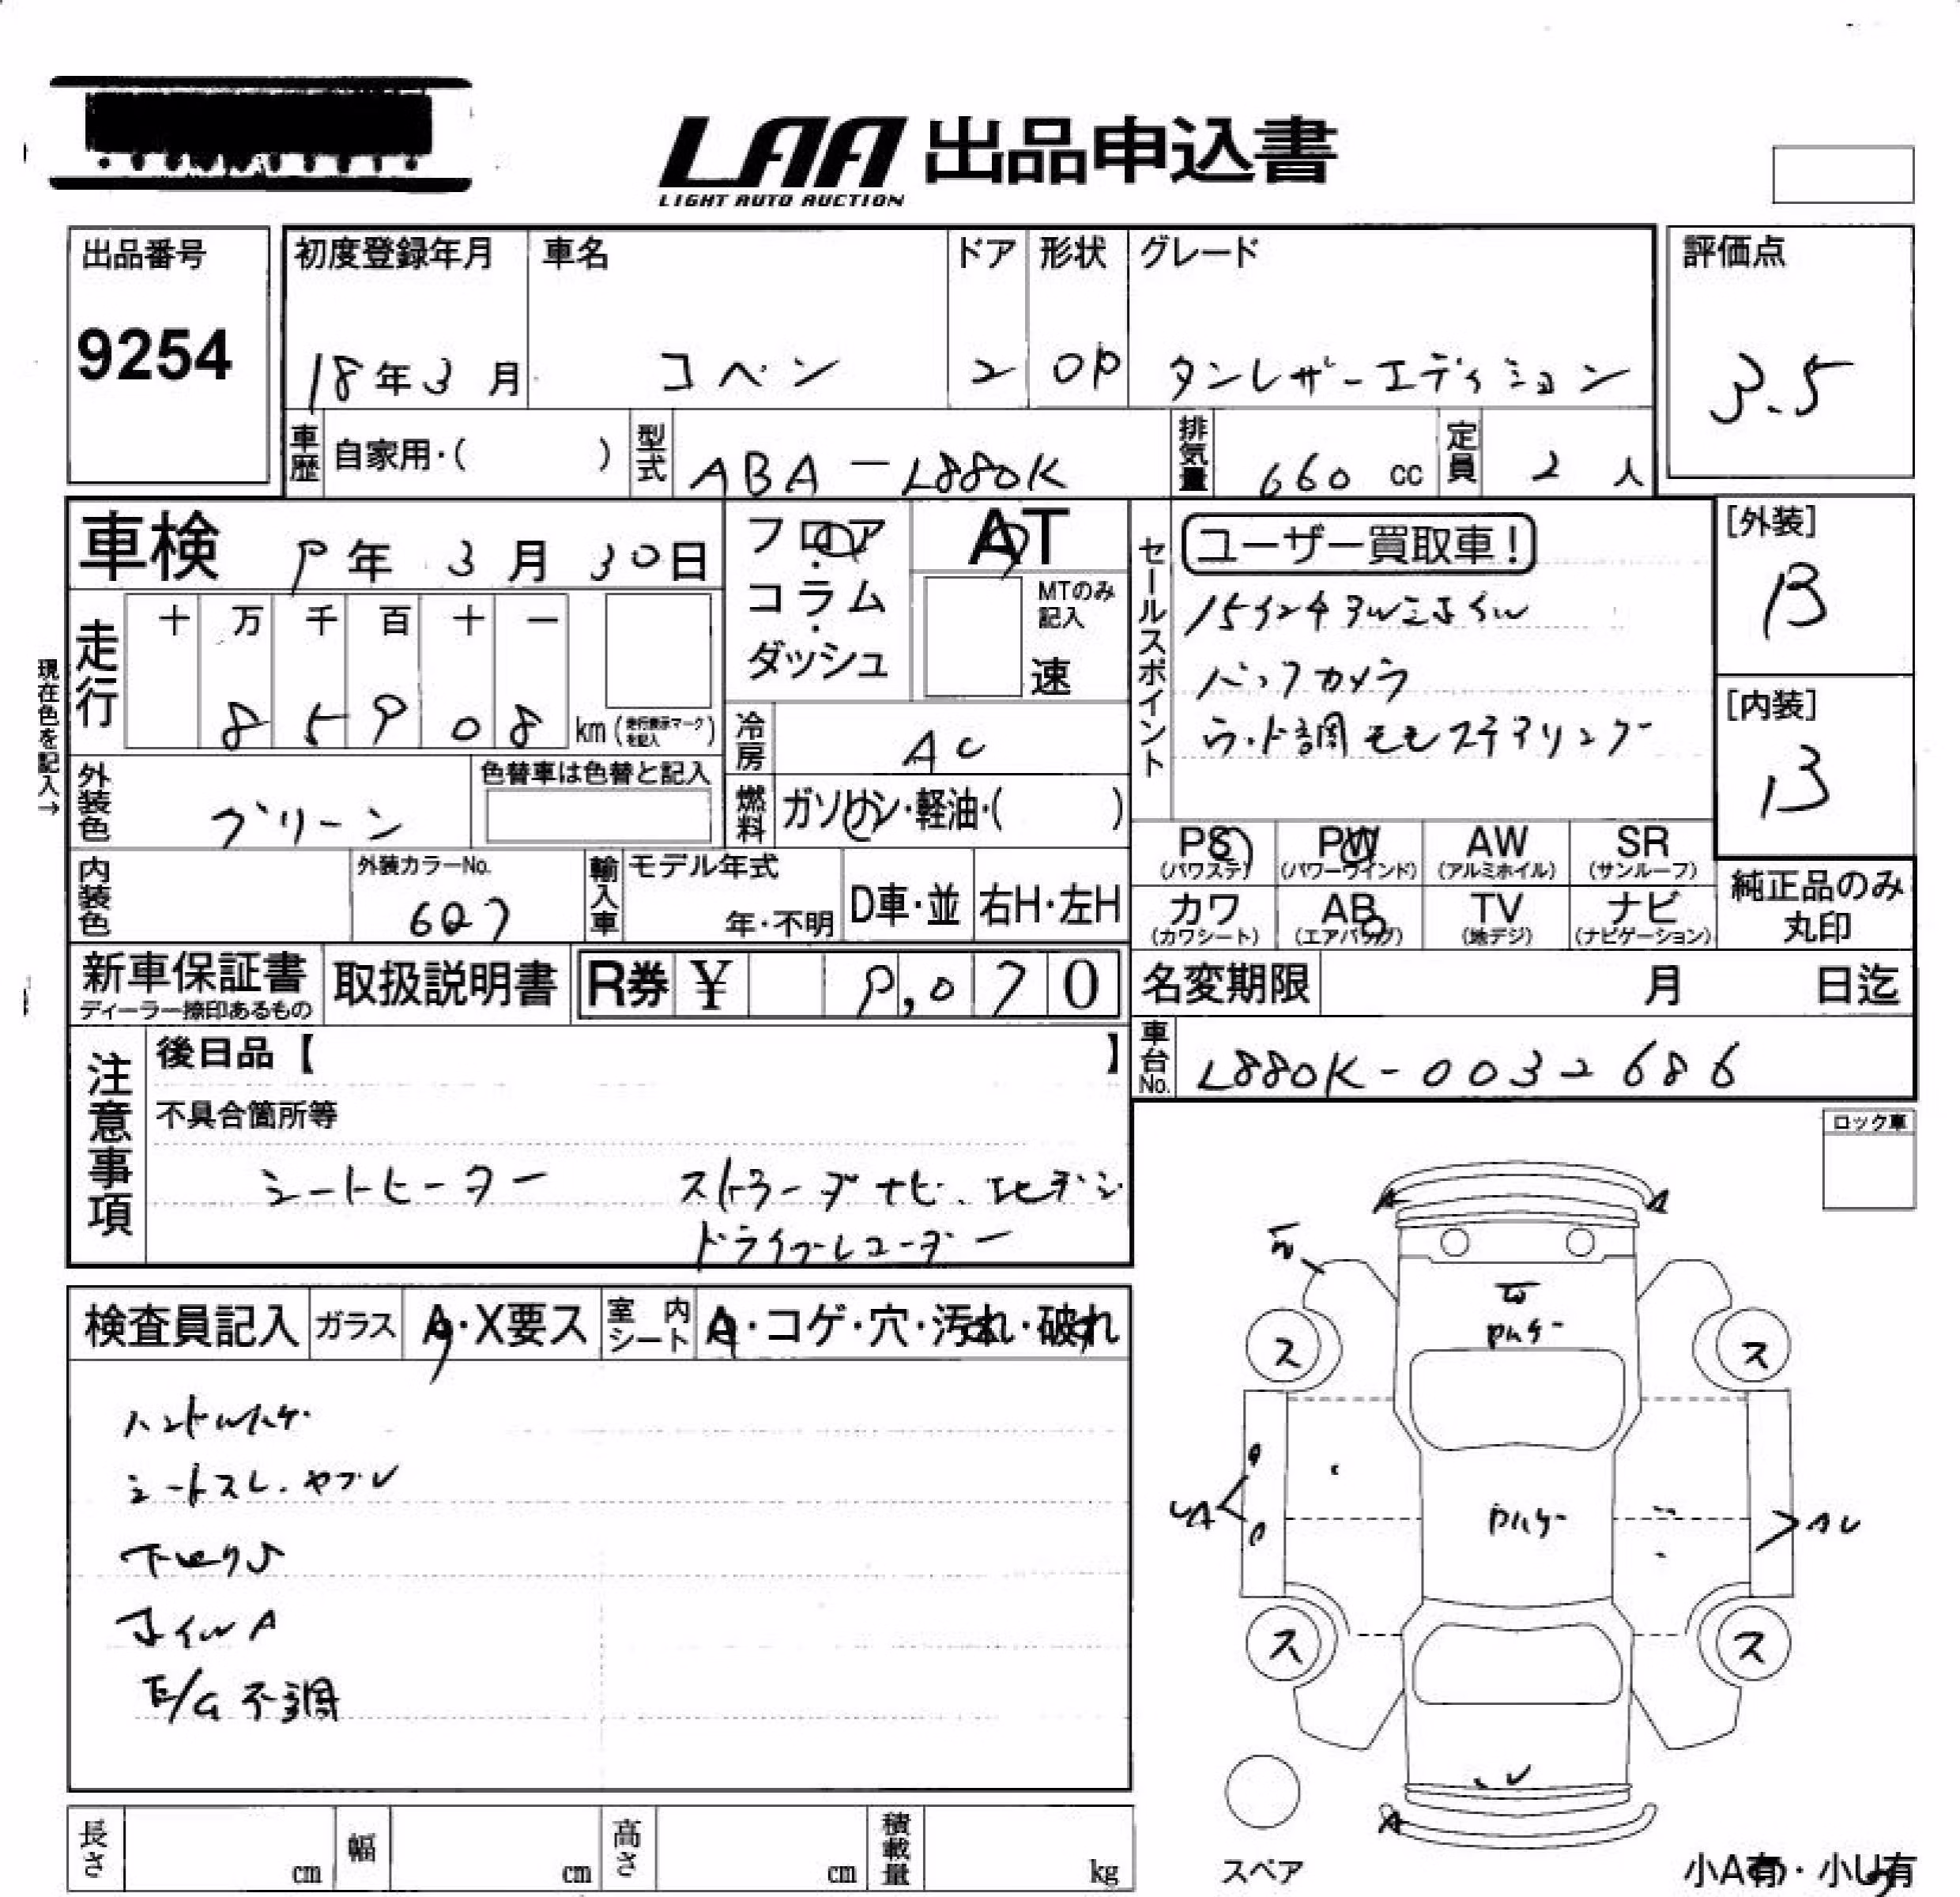 LAA 出品申込書
LIGHT AUTO AUCTION
出品番号
9254
初度登録年月
18年3月
車名
コペン
ドア
2
形状
OP
グレード
タンレザーエディション
評価点
3.5
車歴 自家用・( )
型式 ABA-L880K
排気量 660 cc
定員 2 人
車検 9年3月30日
フロア・コラム・ダッシュ
AT
MTのみ記入
速
セールスポイント
ユーザー買取車!
15インチアルミホイル
バックカメラ
ウッド調モモステアリング
[外装]
B
[内装]
B
現在色を記入→
走行 十 万 千 百 十 一
8 5 9 0 8 km (走行表示マークを記入)
冷房 AC
外装色 グリーン
色替車は色替と記入
燃料 ガソリン・軽油・( )
PS (パワステ) PW (パワーウインド) AW (アルミホイル) SR (サンルーフ)
カワ (カワシート) AB (エアバッグ) TV (地デジ) ナビ (ナビゲーション)
純正品のみ丸印
内装色
外装カラーNo.
6Q7
輸入車 モデル年式
年・不明
D車・並
右H・左H
新車保証書
ディーラー捺印あるもの
取扱説明書
R券 ¥ 9,070
名変期限 月 日迄
車台No. L880K-0032686
注意事項
後日品【 】
不具合箇所等
シートヒーター ストラーダナビ.
ドライブレコーダー
ロック車
検査員記入 ガラス A・X要ス 室内シート A・コゲ・穴・汚れ・破れ
ハンドルハゲ
シートスレ.ヤブレ
下回りS
ホイルA
E/G不調
A A
W
W
ハゲ
ス ス
UA AU
ハゲ
ス ス
U
A
スペア
小A有・小U有
長さ cm 幅 cm 高さ cm 積載量 kg